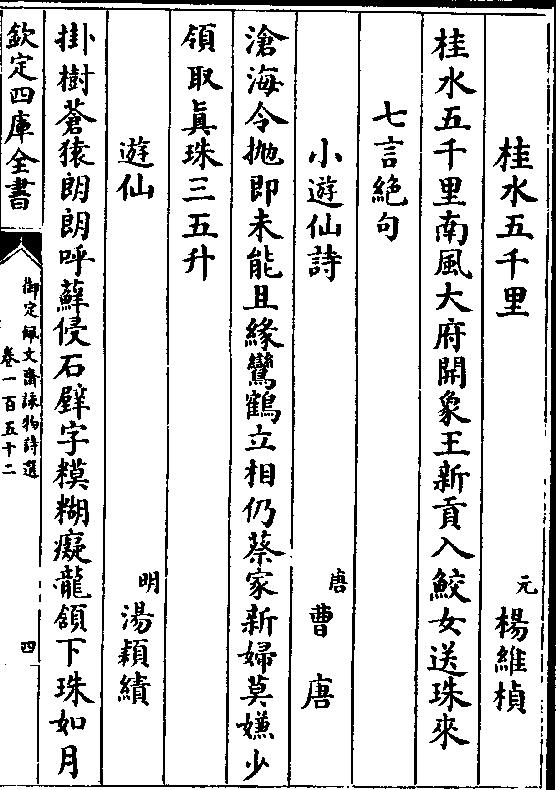 桂水五千里　元　楊維楨
桂水五千里南風大府開象王新貢入鮫女送珠來
七言絶句
小遊仙詩　唐　曹唐
滄海令抛即未能且緣鸞鶴立相仍蔡家新婦莫嫌少
領取眞珠三五升
遊仙　明　湯頴績
掛樹蒼猿朗朗呼蘚侵石壁字糢糊癡龍頷下珠如月
欽定四庫全書
御定佩文齋詠物詩選
卷一百五十二
四